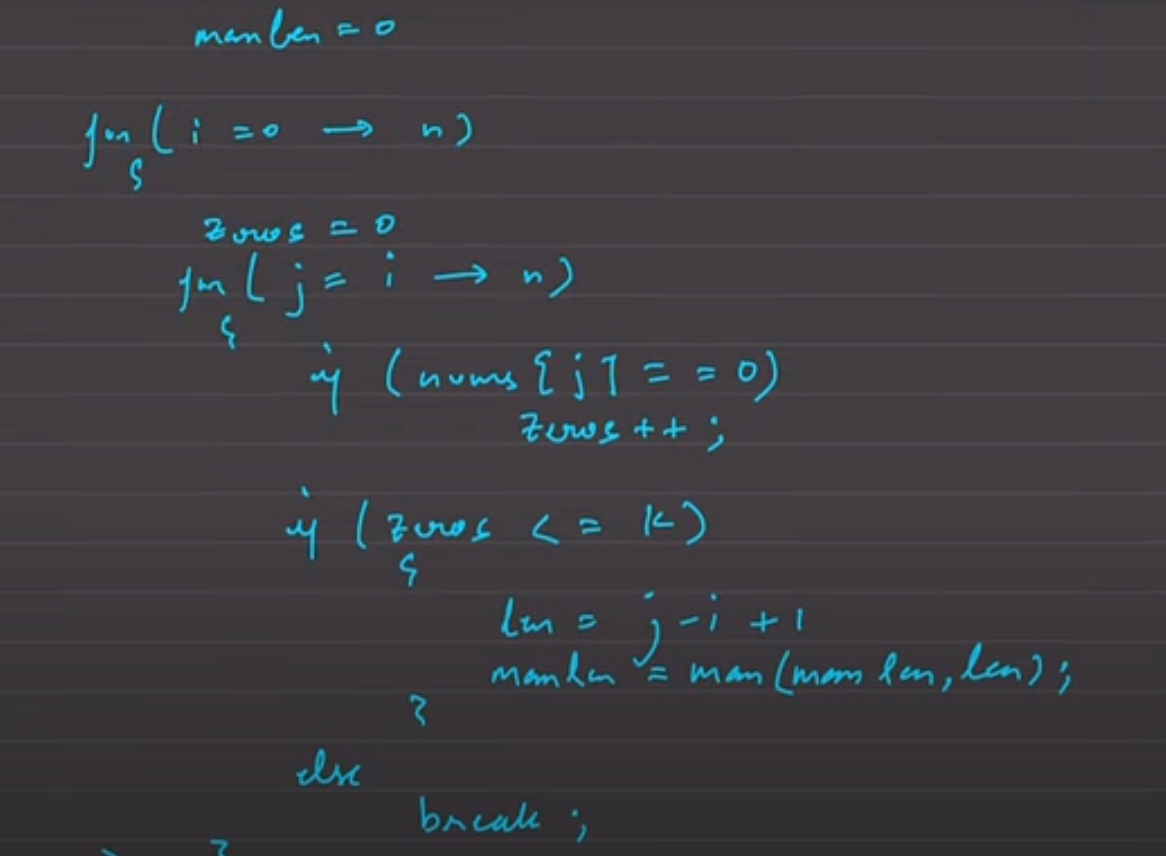 maxlen = 0
for (i = 0 → n)
{
zeros = 0
for (j = i → n)
{
if (nums[j] == 0)
zeros++;
if (zeros <= k)
{
len = j - i + 1
maxlen = max(maxlen, len);
}
else
break;
}